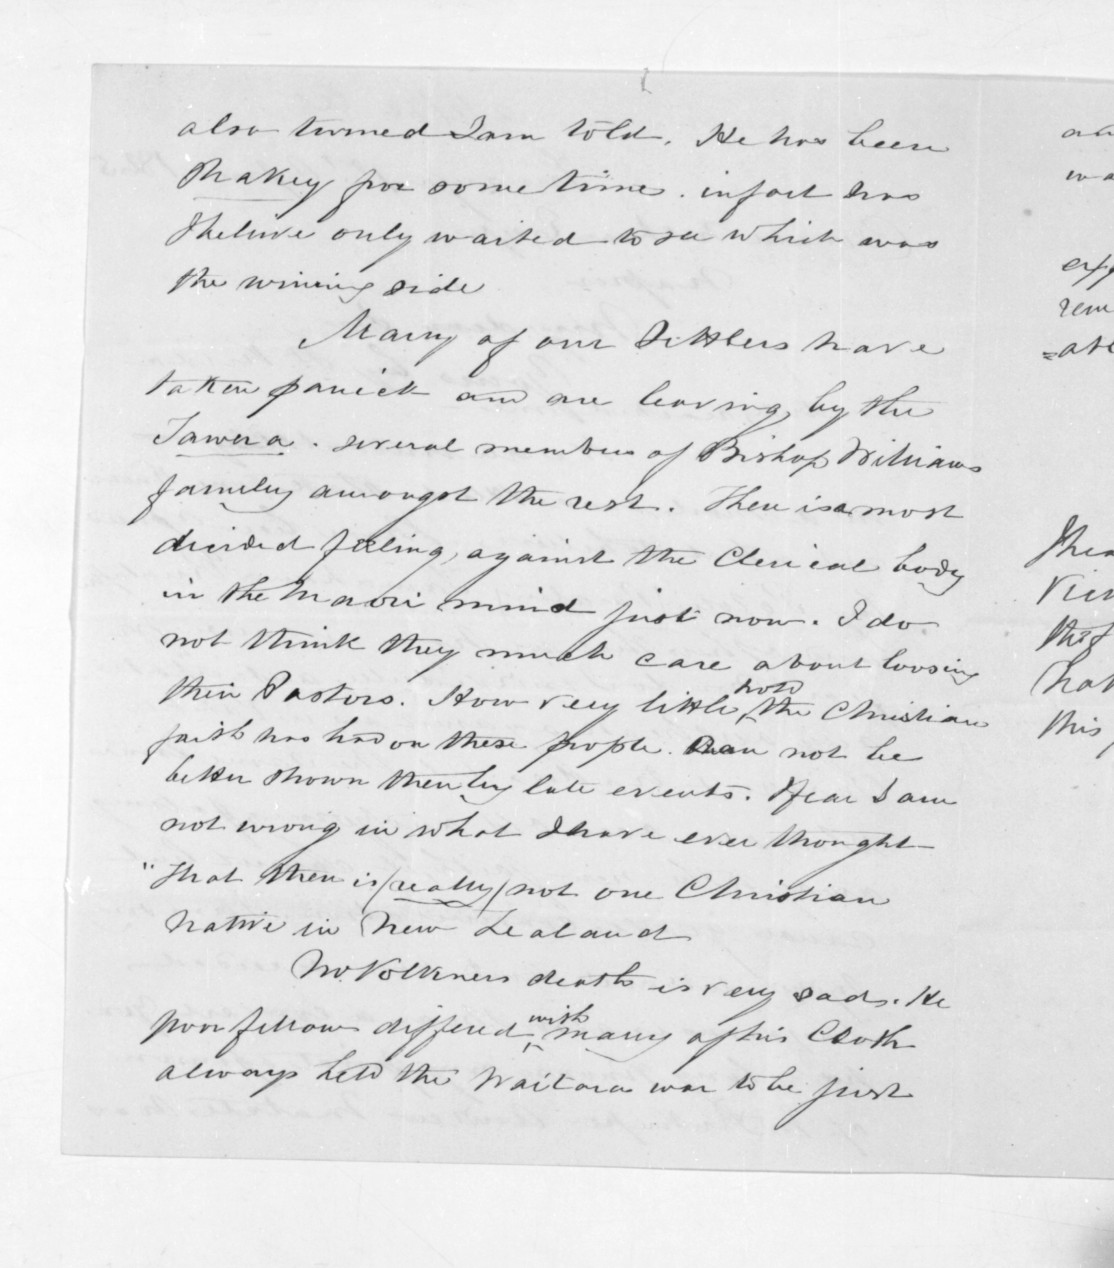 also turned I am told. He has been
Shakey for some time. infact has
I beleive only waited to see which was
the wining side
Many of our Settlers have
taken panick and are leaving by the
Tawera. several members of Bishop Williams
family amongst the rest. There is a most
decided feeling against the Clerical body
in the Maori mind just now. I do
not think they much care about loosing
their Pastors. How very little hold the Christian
faith has had on these people. Can not be
better shown then by late events. I fear I am
not wrong in what I have ever thought
"That there is (really) not one Christian
native in New Zealand
Mr Volkners death is very sad. He
poor fellow differed with many of his Cloth
always held the Waitara war to be just